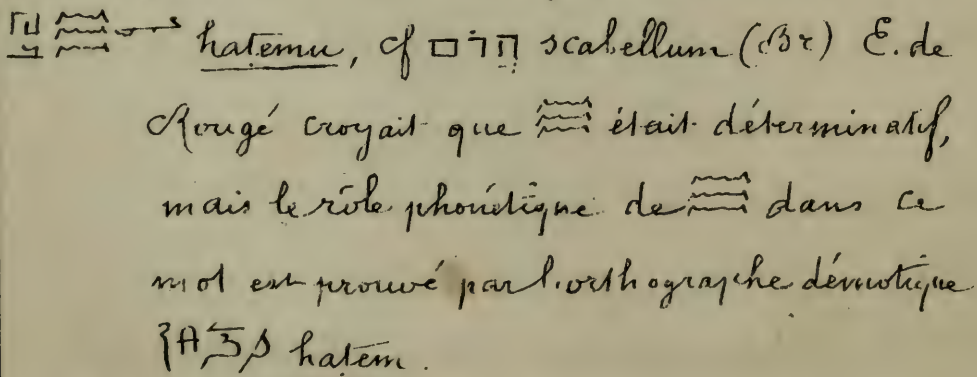 hatemu, cf הֲדֹם scabellum (Br) E. de
Rougé croyait que 𓈗 était déterminatif,
mais le rôle phonétique de 𓈗 dans ce
mot est prouvé par l'orthographe démotique
hatem.